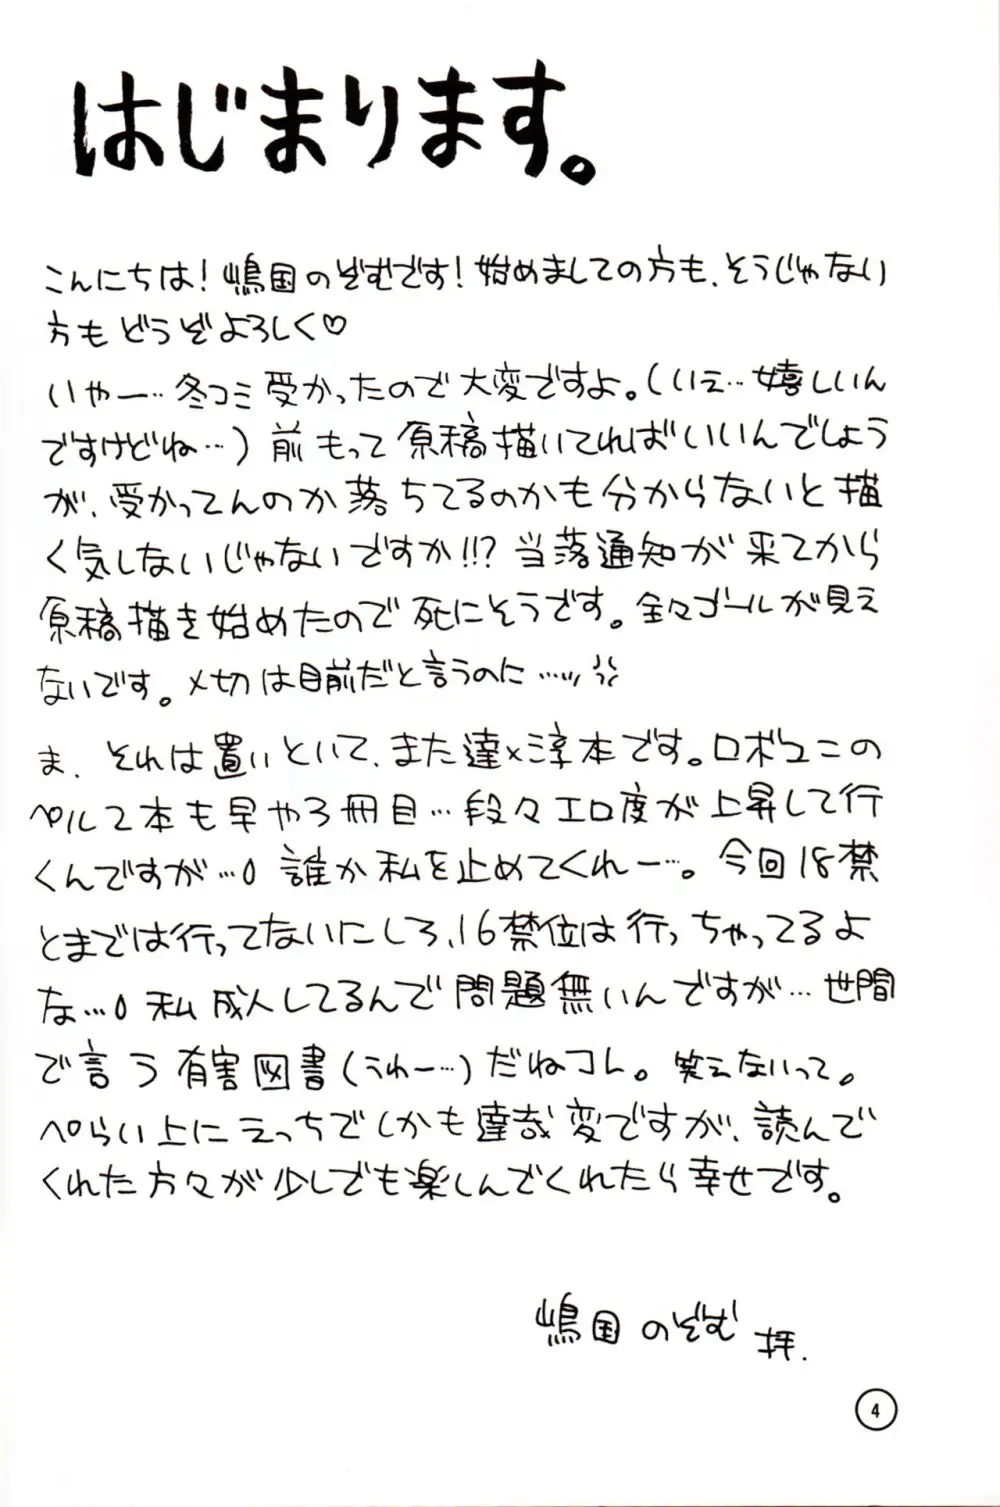 はじまります。
こんにちは!嶋国のぞむです!始めましての方も、そうじゃない
方もどうぞよろしく♡
いやー…冬コミ受かったので大変ですよ。(いえ…嬉しいん
ですけどね…)前もって原稿描いてればいいんでしょう
が、受かってんのか落ちてるのかも分からないと描
く気しないじゃないですか!!?当落通知が来てから
原稿描き始めたので死にそうです。全々ゴールが見え
ないです。〆切は目前だと言うのに……
ま、それは置いといて、また達×淳本です。ロボユニの
ペルで本も早や3冊目…段々エロ度が上昇して行
くんですが…0 誰か私を止めてくれー…。今回18禁
とまでは行ってないにしろ、16禁位は行っちゃってるよ
な…0 私成人してるんで問題無いんですが…世間
で言う有害図書(うわー…)だねコレ。笑えないって。
ぺらい上にえっちでしかも達哉変ですが、読んで
くれた方々が少しでも楽しんでくれたら幸せです。
嶋国のぞむ 拝.
4